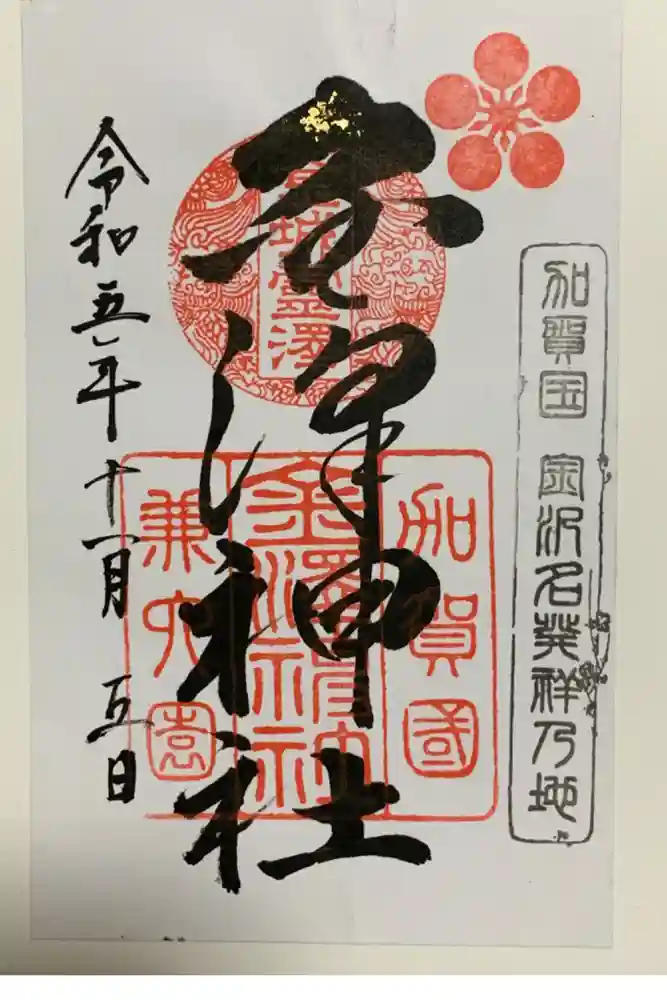 加賀国 金沢名発祥乃地
金澤神社
金城霊澤
加賀國
金澤神社
兼六園
令和五年十一月五日